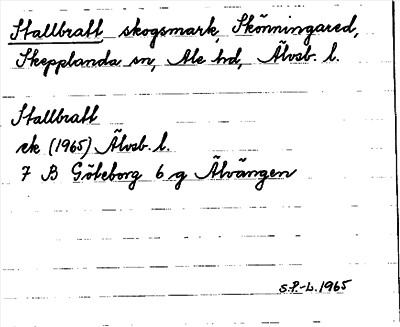 Stallbratt skogsmark, Skönningared,
Skepplanda sn, Ale hd, Älvsb. l.
Stallbratt
ek (1965) Älvsb. l.
7 B Göteborg 6 g Älvängen
S.P.-L. 1965